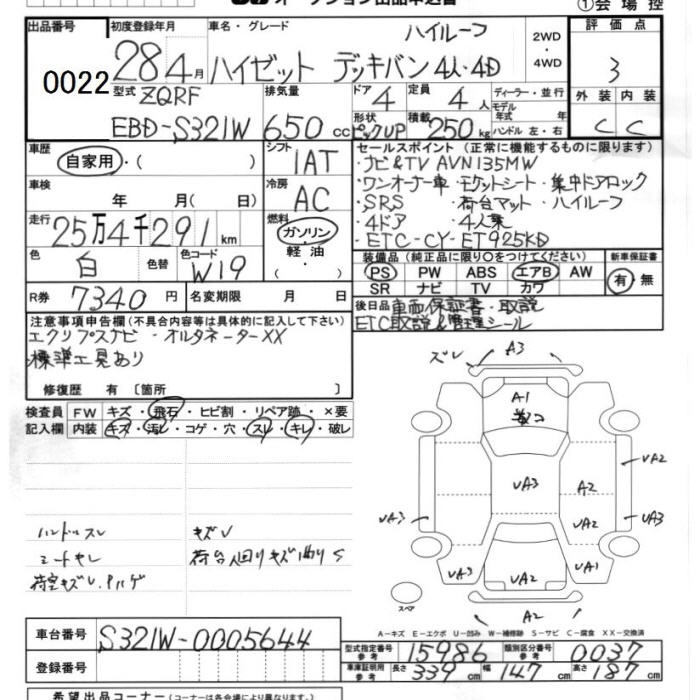 オークション出品申込書 ①会場控
出品番号 初度登録年月 車名・グレード ハイルーフ 2WD・4WD 評価点
0022 28 4月 ハイゼット デッキバン 4人・4D 3
型式 ZQRF 排気量 ドア 4 定員 4人 ディーラー・並行 外装 内装
EBD-S321W 650cc 形状 ピックUP 積載 250kg モデル年式 年式 ハンドル 左・右 C C
車歴 自家用・( ) シフト 1AT セールスポイント (正常に機能するものに限ります)
・ナビ&TV AVN135MW
車検 年 月( 日) 冷房 AC ・ワンオーナー車・ ・集中ドアロック
・SRS ・荷台マット・ハイルーフ
走行 25万4千291km 燃料 ガソリン・軽油・( ) ・4ドア ・4人乗
・ETC-CY-ET925KD
色 白 色替 色コード W19 装備品 (純正品に限り○をつけてください) 新車保証書
PS PW ABS エアB AW 有・無
SR ナビ TV カワ
R券 7340円 名変期限 月 日 後日品 車両保証書・取説
ETC取説&管理シール
注意事項申告欄(不具合内容等は具体的に記入して下さい)
エクリプスナビ・オルタネーターXX
標準工具あり
修復歴 有〔箇所 〕
検査員 FW キズ・飛石・ヒビ割・リペア跡・×要
記入欄 内装 キズ・汚レ・コゲ・穴・スレ・キレ・破レ
ズレ A3
A1
UA2
UA3 A2
UA3 UA2 UA3
UA3 UA2 UA1
A2
ハンドルスレ キズU
シートキレ 荷台回りキズ曲り S
スペア
A-キズ E-エクボ U-凹み W-補修跡 S-サビ C-腐食 XX-交換済
車台番号 S321W-0005644
型式指定番号 参考 15986 類別区分番号 参考 0037
登録番号 車庫証明用 参考 長さ 339cm 幅 147cm 高さ 187cm
希望出品コーナー(コーナーは各会場により異なります。)